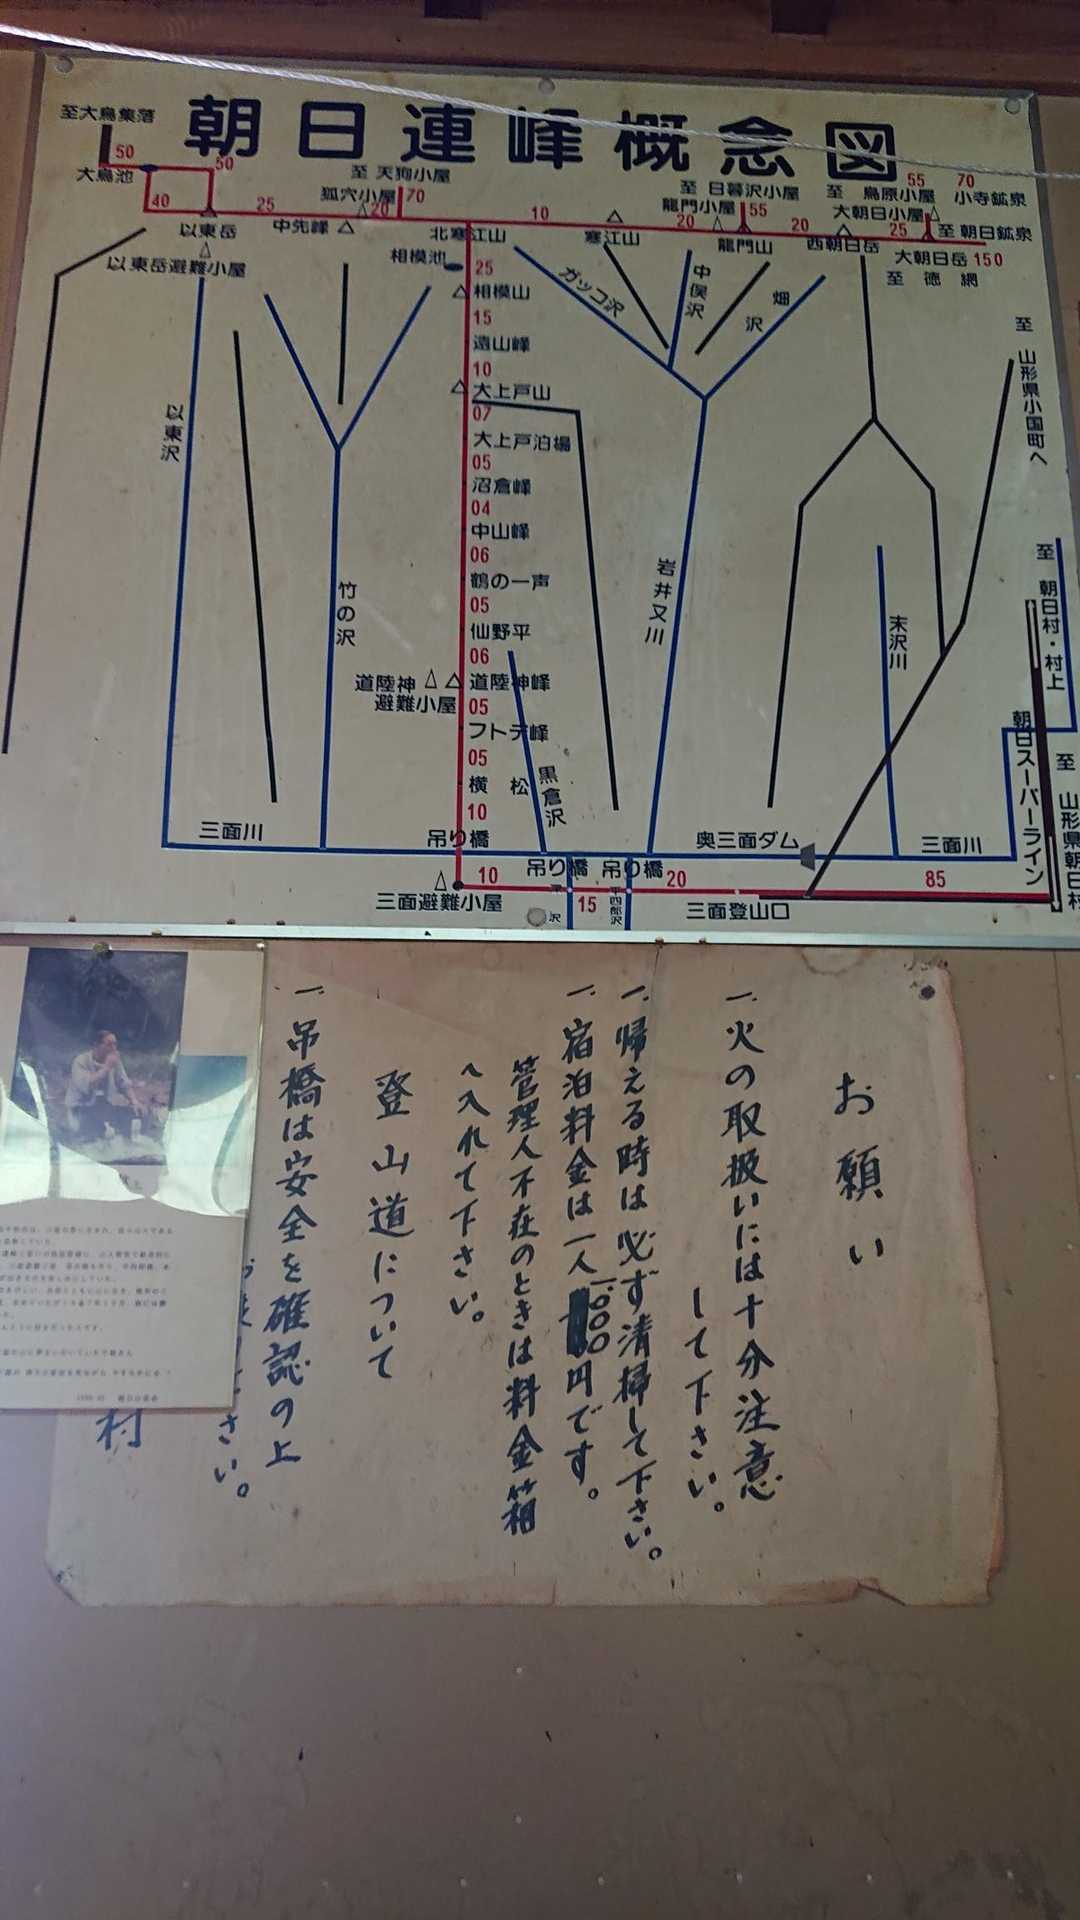 朝日連峰概念図
至大鳥集落
50
大鳥池
50
40
25
以東岳
以東岳避難小屋
中先峰
狐穴小屋
20
至 天狗小屋
70
10
北寒江山
相模池
寒江山
20
龍門小屋
至 日暮沢小屋
55
龍門山
20
西朝日岳
至 鳥原小屋
55
70
小寺鉱泉
大朝日小屋
25
至 朝日鉱泉
大朝日岳
150
至 徳網
25
相模山
15
遠山峰
10
大上戸山
07
大上戸泊場
05
沼倉峰
04
中山峰
06
鶴の一声
05
仙野平
06
道陸神峰
道陸神
避難小屋
05
フトデ峰
05
横松
10
以東沢
竹の沢
ガッコ沢
中俣沢
畑沢
岩井又川
黒倉沢
末沢川
至 山形県小国町へ
至 朝日村・村上
朝日スーパーライン
至 山形県朝日村
三面川
吊り橋
吊り橋
吊り橋
奥三面ダム
三面川
三面避難小屋
10
沢
15
平四郎沢
20
三面登山口
85
お願い
一.火の取扱いには十分注意
して下さい。
一.帰える時は必ず清掃して下さい。
一.宿泊料金は一人1.000円です。
管理人不在のときは料金箱
へ入れて下さい。
登山道について
一.吊橋は安全を確認の上
さい。
村